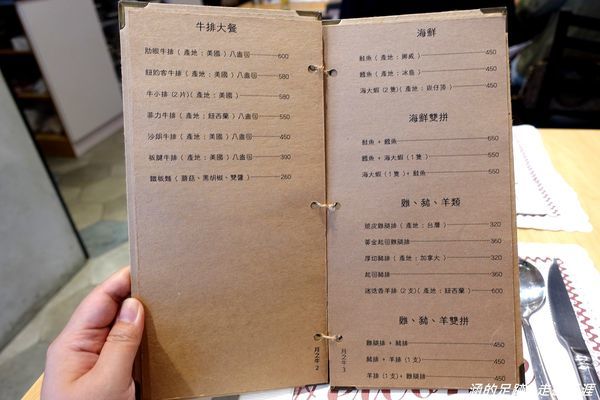 牛排大餐
肋眼牛排(產地:美國)八盎司 600
紐約客牛排(產地:美國)八盎司 580
牛小排(2片)(產地:美國) 580
菲力牛排(產地:紐西蘭)八盎司 550
沙朗牛排(產地:美國)八盎司 450
板腱牛排(產地:美國)八盎司 390
鐵板麵(蘑菇、黑胡椒、雙醬) 260
月之牛 2
海鮮
鮭魚(產地:挪威) 450
鱈魚(產地:冰島) 450
海大蝦(2隻)(產地:崁仔頂) 450
海鮮雙拼
鮭魚+鱈魚 550
鱈魚+海大蝦(1隻) 550
海大蝦(1隻)+鮭魚 550
雞、豬、羊類
脆皮雞腿排(產地:台灣) 320
黃金起司雞腿排 360
厚切豬排(產地:加拿大) 320
起司豬排 360
迷迭香羊排(2支)(產地:紐西蘭) 600
雞、豬、羊雙拼
雞腿排+豬排 450
豬排+羊排(1支) 450
羊排(1支)+雞腿排 450
月之牛 3
涵的足跡 走 涯